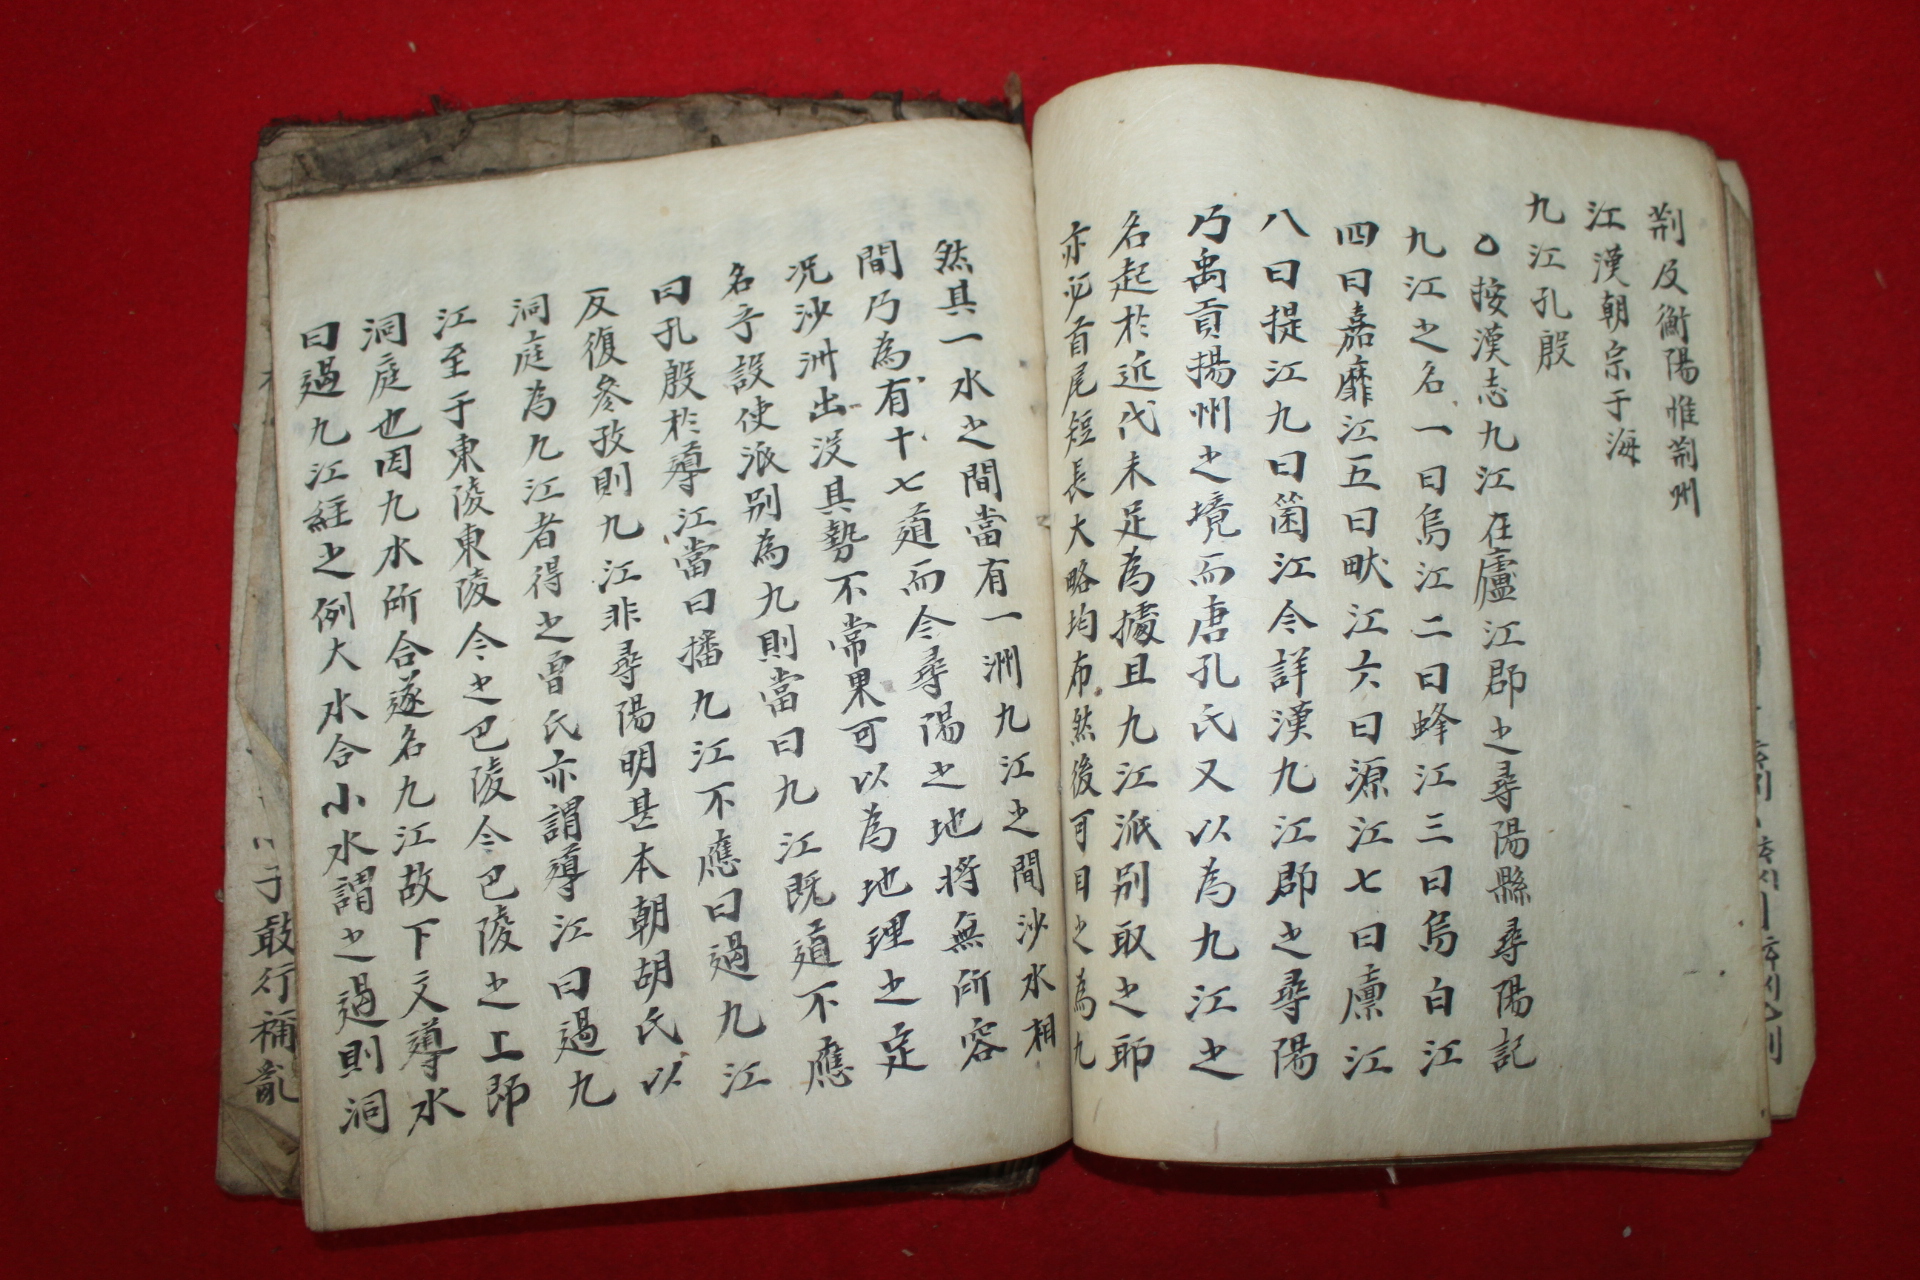 荆及衡陽惟荆州
江漢朝宗于海
九江孔殷
○按漢志九江在廬江郡之尋陽縣尋陽記
九江之名一曰烏江二曰蜂江三曰烏白江
四曰嘉靡江五曰畎江六曰源江七曰廩江
八曰提江九曰箘江今詳漢九江郡之尋陽
乃禹貢揚州之境而唐孔氏又以為九江之
名起於近代未足為據且九江派別取之耶
亦必首尾短長大略均布然後可目之為九
然其一水之間當有一洲九江之間沙水相
間乃為有十七道而今尋陽之地將無所容
况沙洲出沒其勢不常果可以為地理之定
名乎設使派別為九則當曰九江既道不應
曰孔殷於導江當曰播九江不應曰過九江
反復參攷則九江非尋陽明甚本朝胡氏以
洞庭為九江者得之曾氏亦謂導江曰過九
江至于東陵東陵今之巴陵今巴陵之上即
洞庭也因九水所合遂名九江故下文導水
曰過九江經之例大水合小水謂之過則洞
子敢行補亂